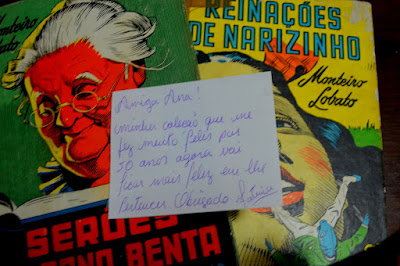 Monteiro
Lobato
REINAÇÕES
DE NARIZINHO
Monteiro
Lobato
Amiga Ana!
minha coleção que me
fez muito feliz por
50 anos agora vai
ficar mais feliz em lhe
pertencer. Obrigado
SERÕES
DONA BENTA